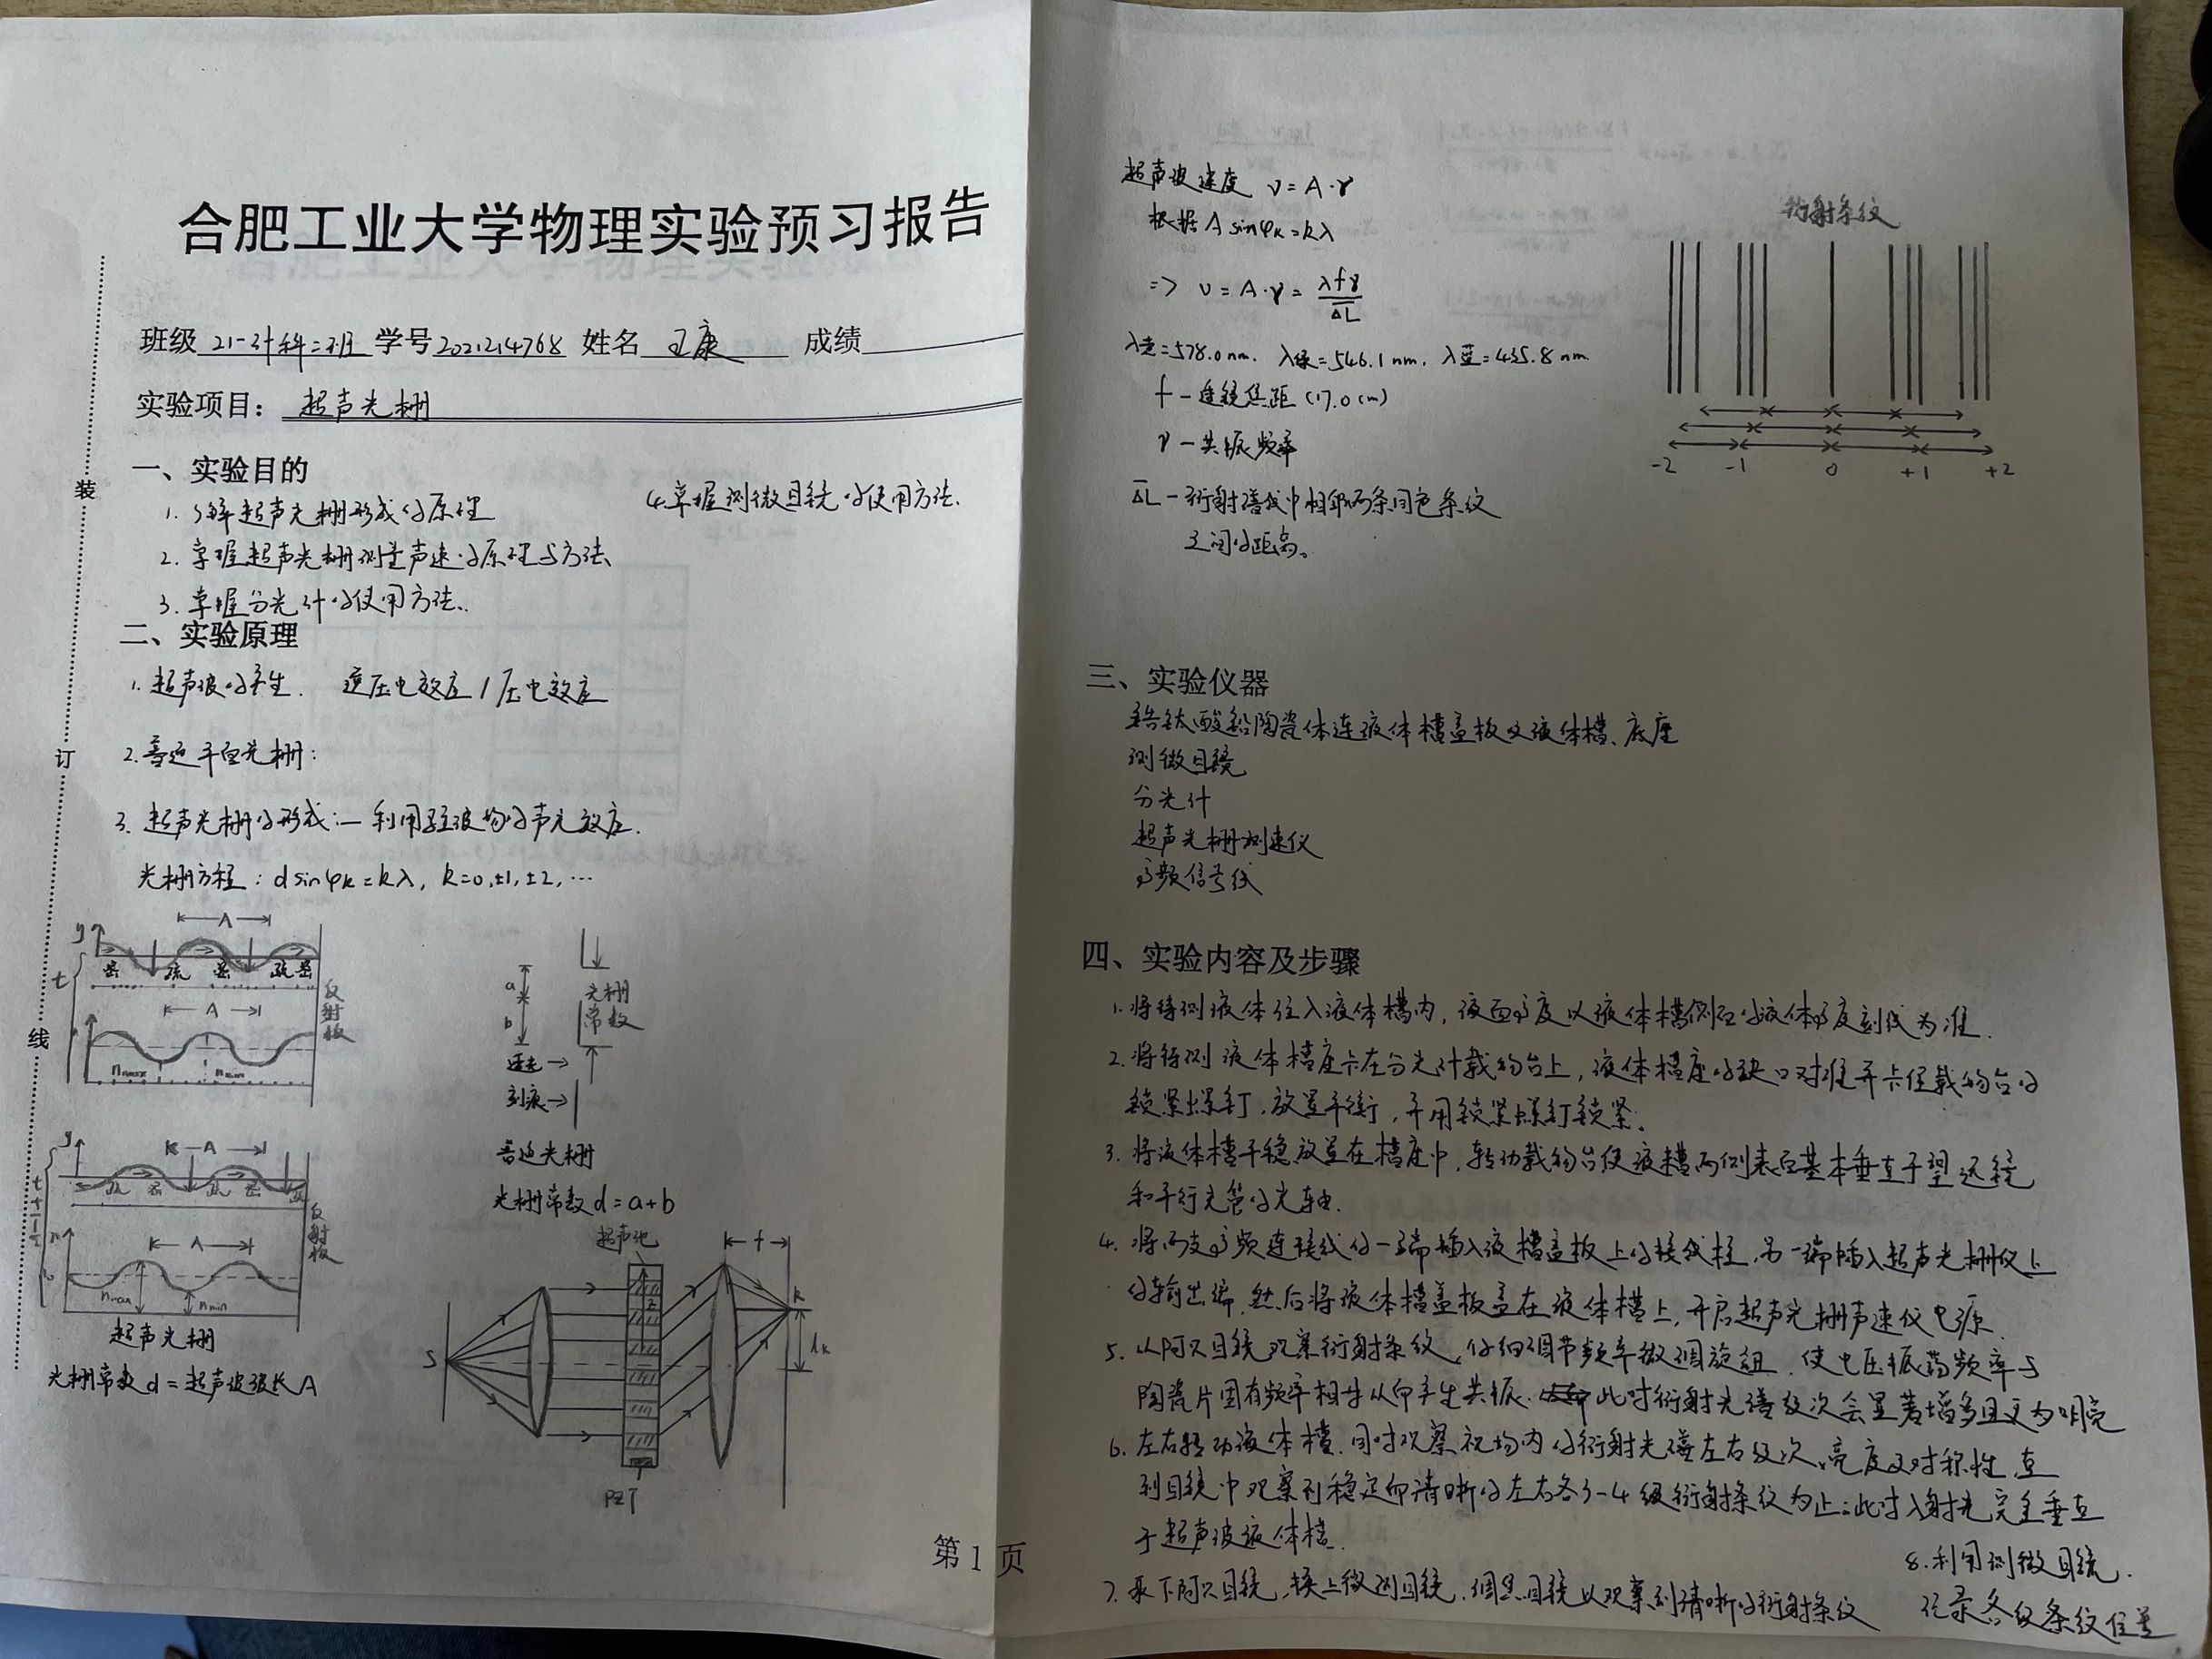 合肥工业大学物理实验预习报告
班级 21-计科二班 学号 2021214768 姓名 王康 成绩
实验项目： 超声光栅
一、实验目的
1. 了解超声光栅形成的原理
2. 掌握超声光栅测量声速的原理与方法
3. 掌握分光计的使用方法.
4. 掌握测微目镜的使用方法.
二、实验原理
1. 超声波的产生. 逆压电效应 / 压电效应
2. 普通平面光栅：
3. 超声光栅的形成：— 利用驻波场的声光效应.
光栅方程：d sinφk = kλ, k=0, ±1, ±2, …
A
y
t
密 疏 密 疏 密
反射板
A
nmax nmin
y
A
疏 密 疏 密 疏
反射板
n
A
nmax nmin
超声光栅
光栅常数 d = 超声波波长 A
a
b
光栅常数
透光→
刻痕→
普通光栅
光栅常数 d = a+b
超声池
f
k
lk
S
PZT
装
订
线
第 1 页
超声波速度 v = A·γ
根据 A sinφk = kλ
=> v = A·γ = λfγ / ΔL
λ黄=578.0nm. λ绿=546.1nm. λ蓝=435.8nm
f — 透镜焦距 (17.0cm)
γ — 共振频率
ΔL — 衍射谱线中相邻两条同色条纹
之间的距离。
衍射条纹
-2 -1 0 +1 +2
三、实验仪器
锆钛酸铅陶瓷体连液体槽盖板及液体槽、底座
测微目镜
分光计
超声光栅测速仪
高频信号线
四、实验内容及步骤
1. 将待测液体注入液体槽内, 液面高度以液体槽侧面的液体高度刻线为准.
2. 将待测液体槽座卡在分光计载物台上, 液体槽座的缺口对准并卡住载物台的
锁紧螺钉, 放置平衡, 并用锁紧螺钉锁紧.
3. 将液体槽平稳放置在槽座中, 转动载物台使液槽两侧表面基本垂直于望远镜
和平行光管的光轴.
4. 将两支高频连接线的一端插入液槽盖板上的接线柱, 另一端插入超声光栅仪上
的输出端, 然后将液体槽盖板盖在液体槽上, 开启超声光栅声速仪电源.
5. 从阿贝目镜观察衍射条纹, 仔细调节频率微调旋钮, 使电压振荡频率与
陶瓷片固有频率相等从而产生共振. 此时衍射光谱级次会显著增多且更为明亮
6. 左右转动液体槽. 同时观察视场内的衍射光谱左右级次、亮度及对称性, 直
到目镜中观察到稳定而清晰的左右各3-4级衍射条纹为止; 此时入射光完全垂直
于超声波液体槽.
7. 取下阿贝目镜, 换上微测目镜, 调焦目镜以观察到清晰的衍射条纹
8. 利用测微目镜.
记录各级条纹位置